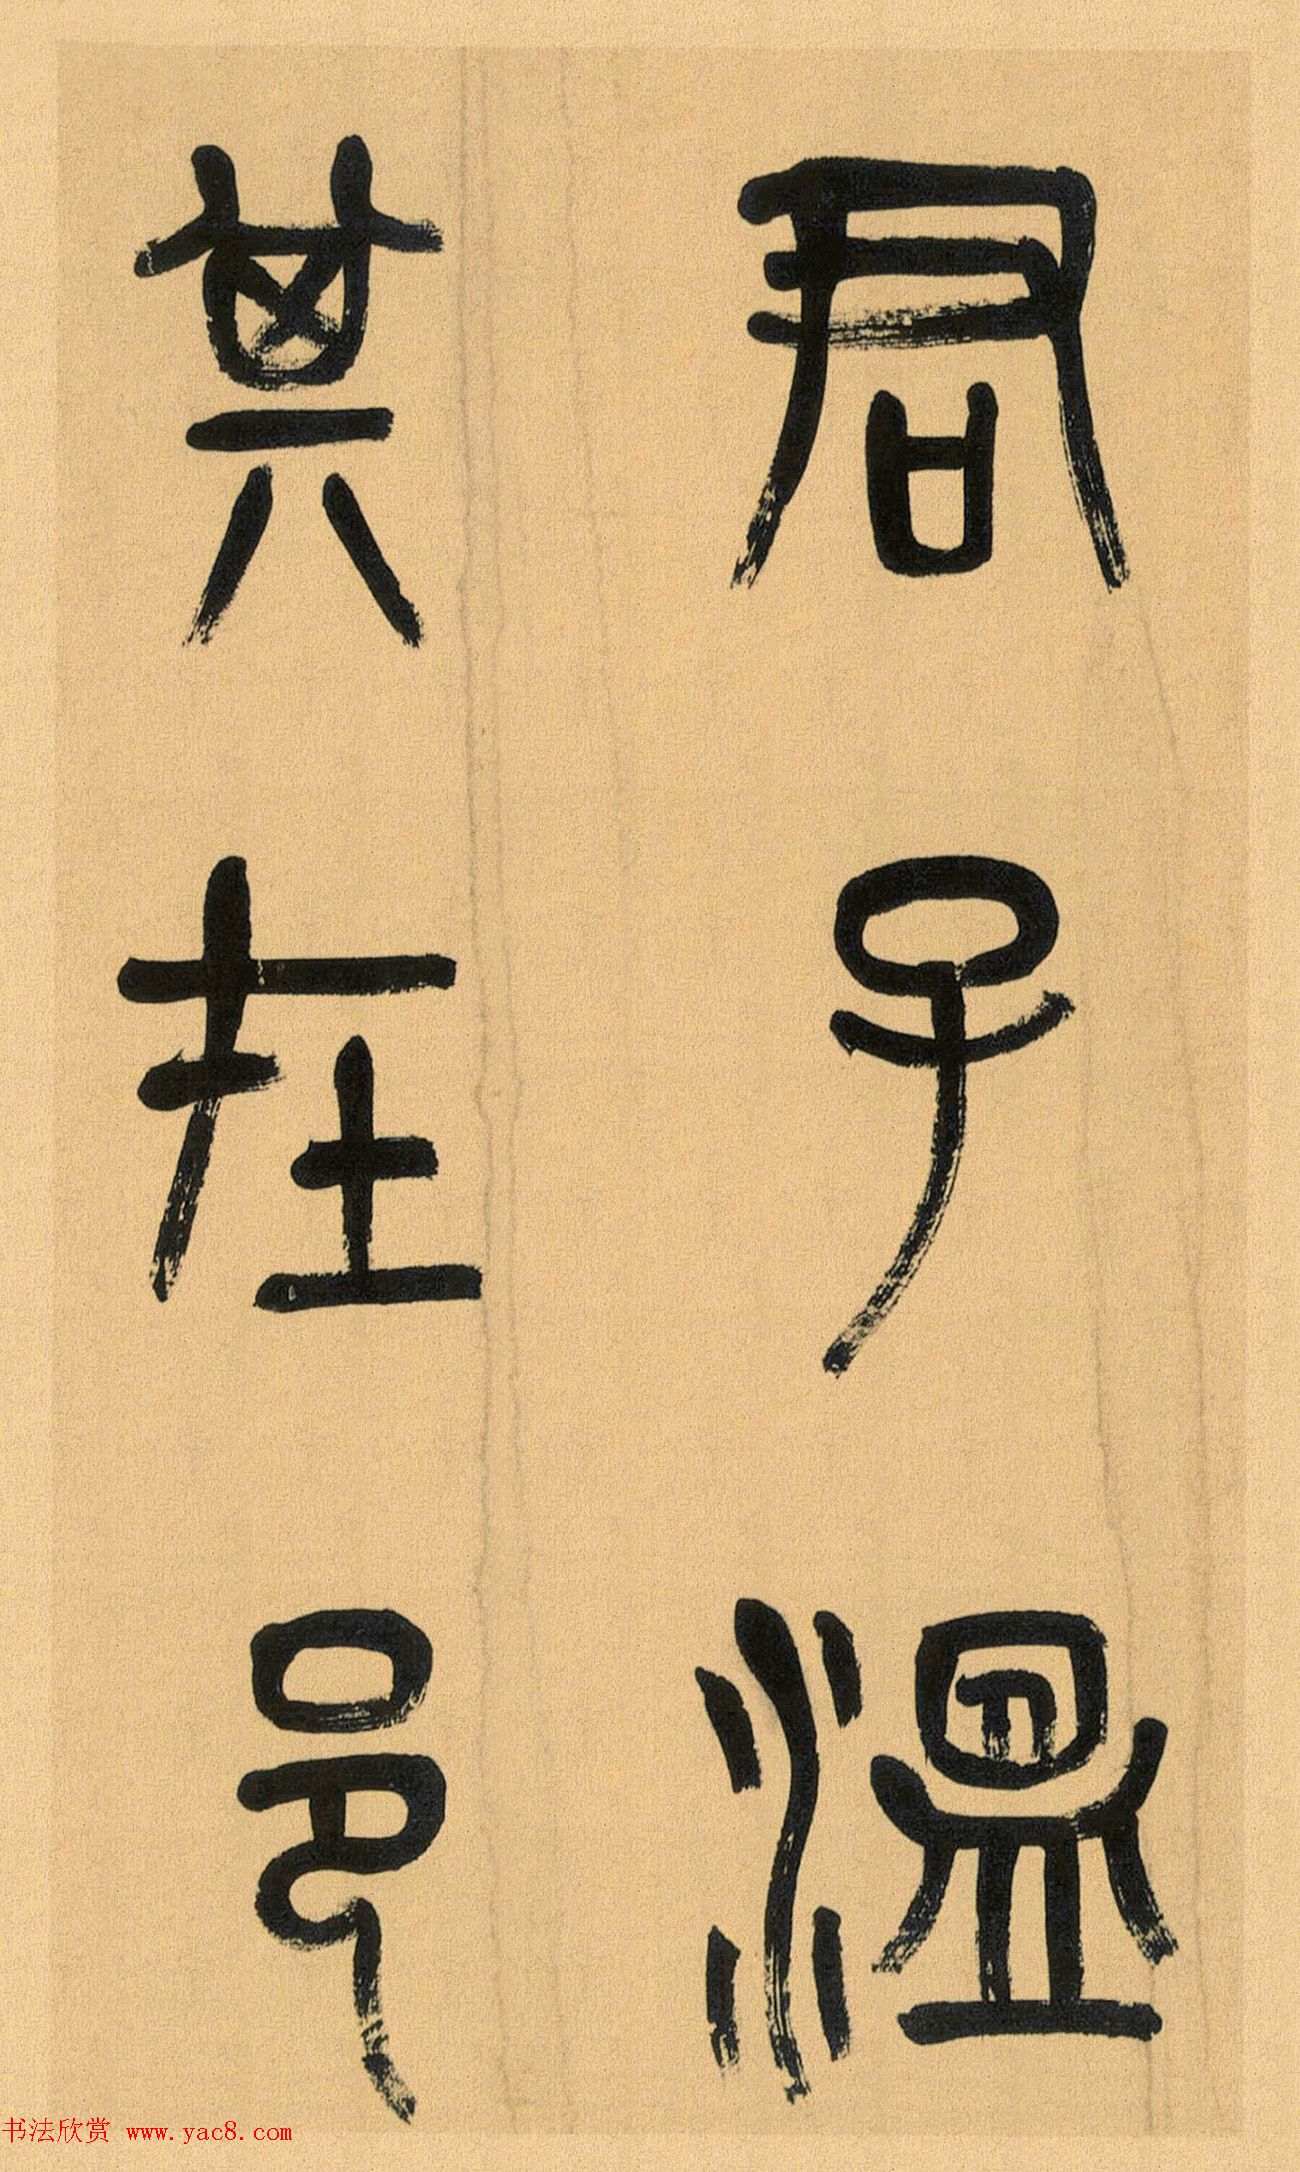 君子温
其在邑
书法欣赏 www.yac8.com